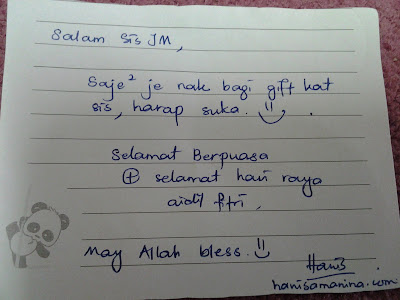 Salam sis JM,
Saje² je nak bagi gift kat
sis, harap suka.
Selamat Berpuasa
+ selamat hari raya
aidil fitri,
May Allah bless.
Hanis
hanisamanina.com